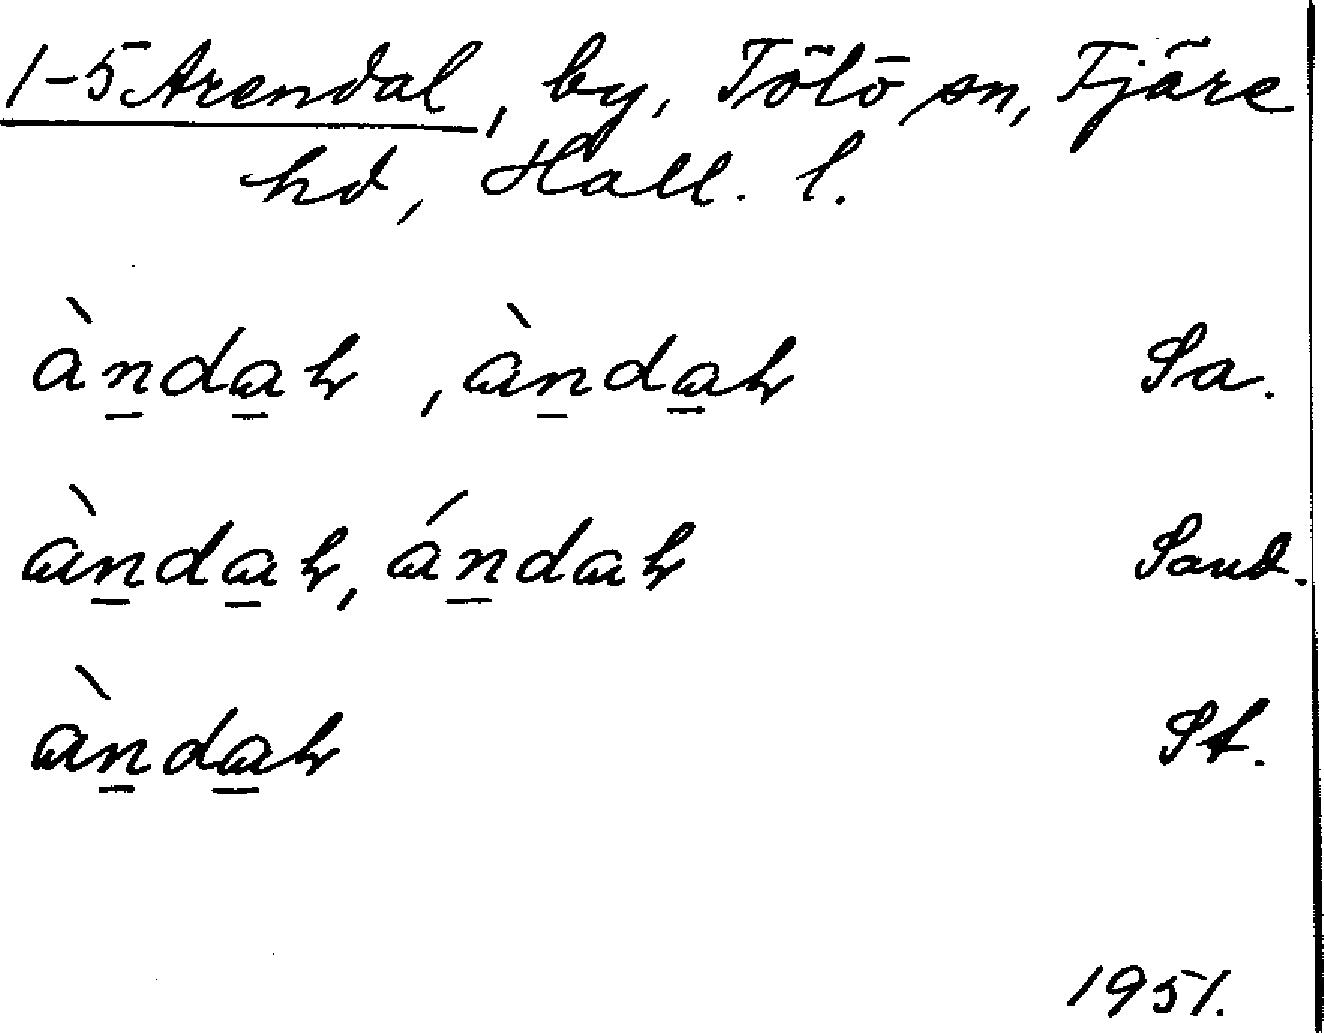 1-5 Arendal, by, Tölö sn, Fjäre
hd, Hall. l.
àndaɫ, àndaɫ Sa.
àndaɫ, ándaɫ Sand.
àndaɫ St.
1951.